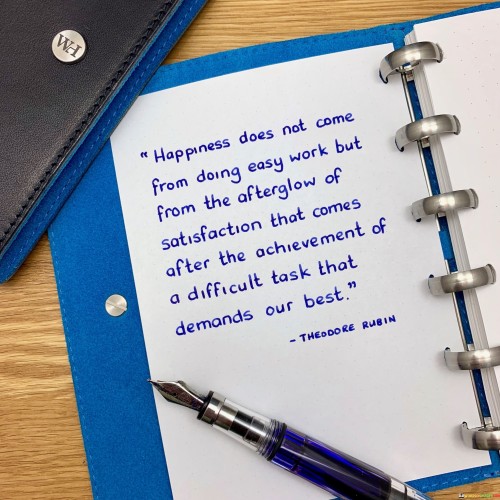 WH
“Happiness does not come
from doing easy work but
from the afterglow of
satisfaction that comes
after the achievement of
a difficult task that
demands our best.”
- THEODORE RUBIN